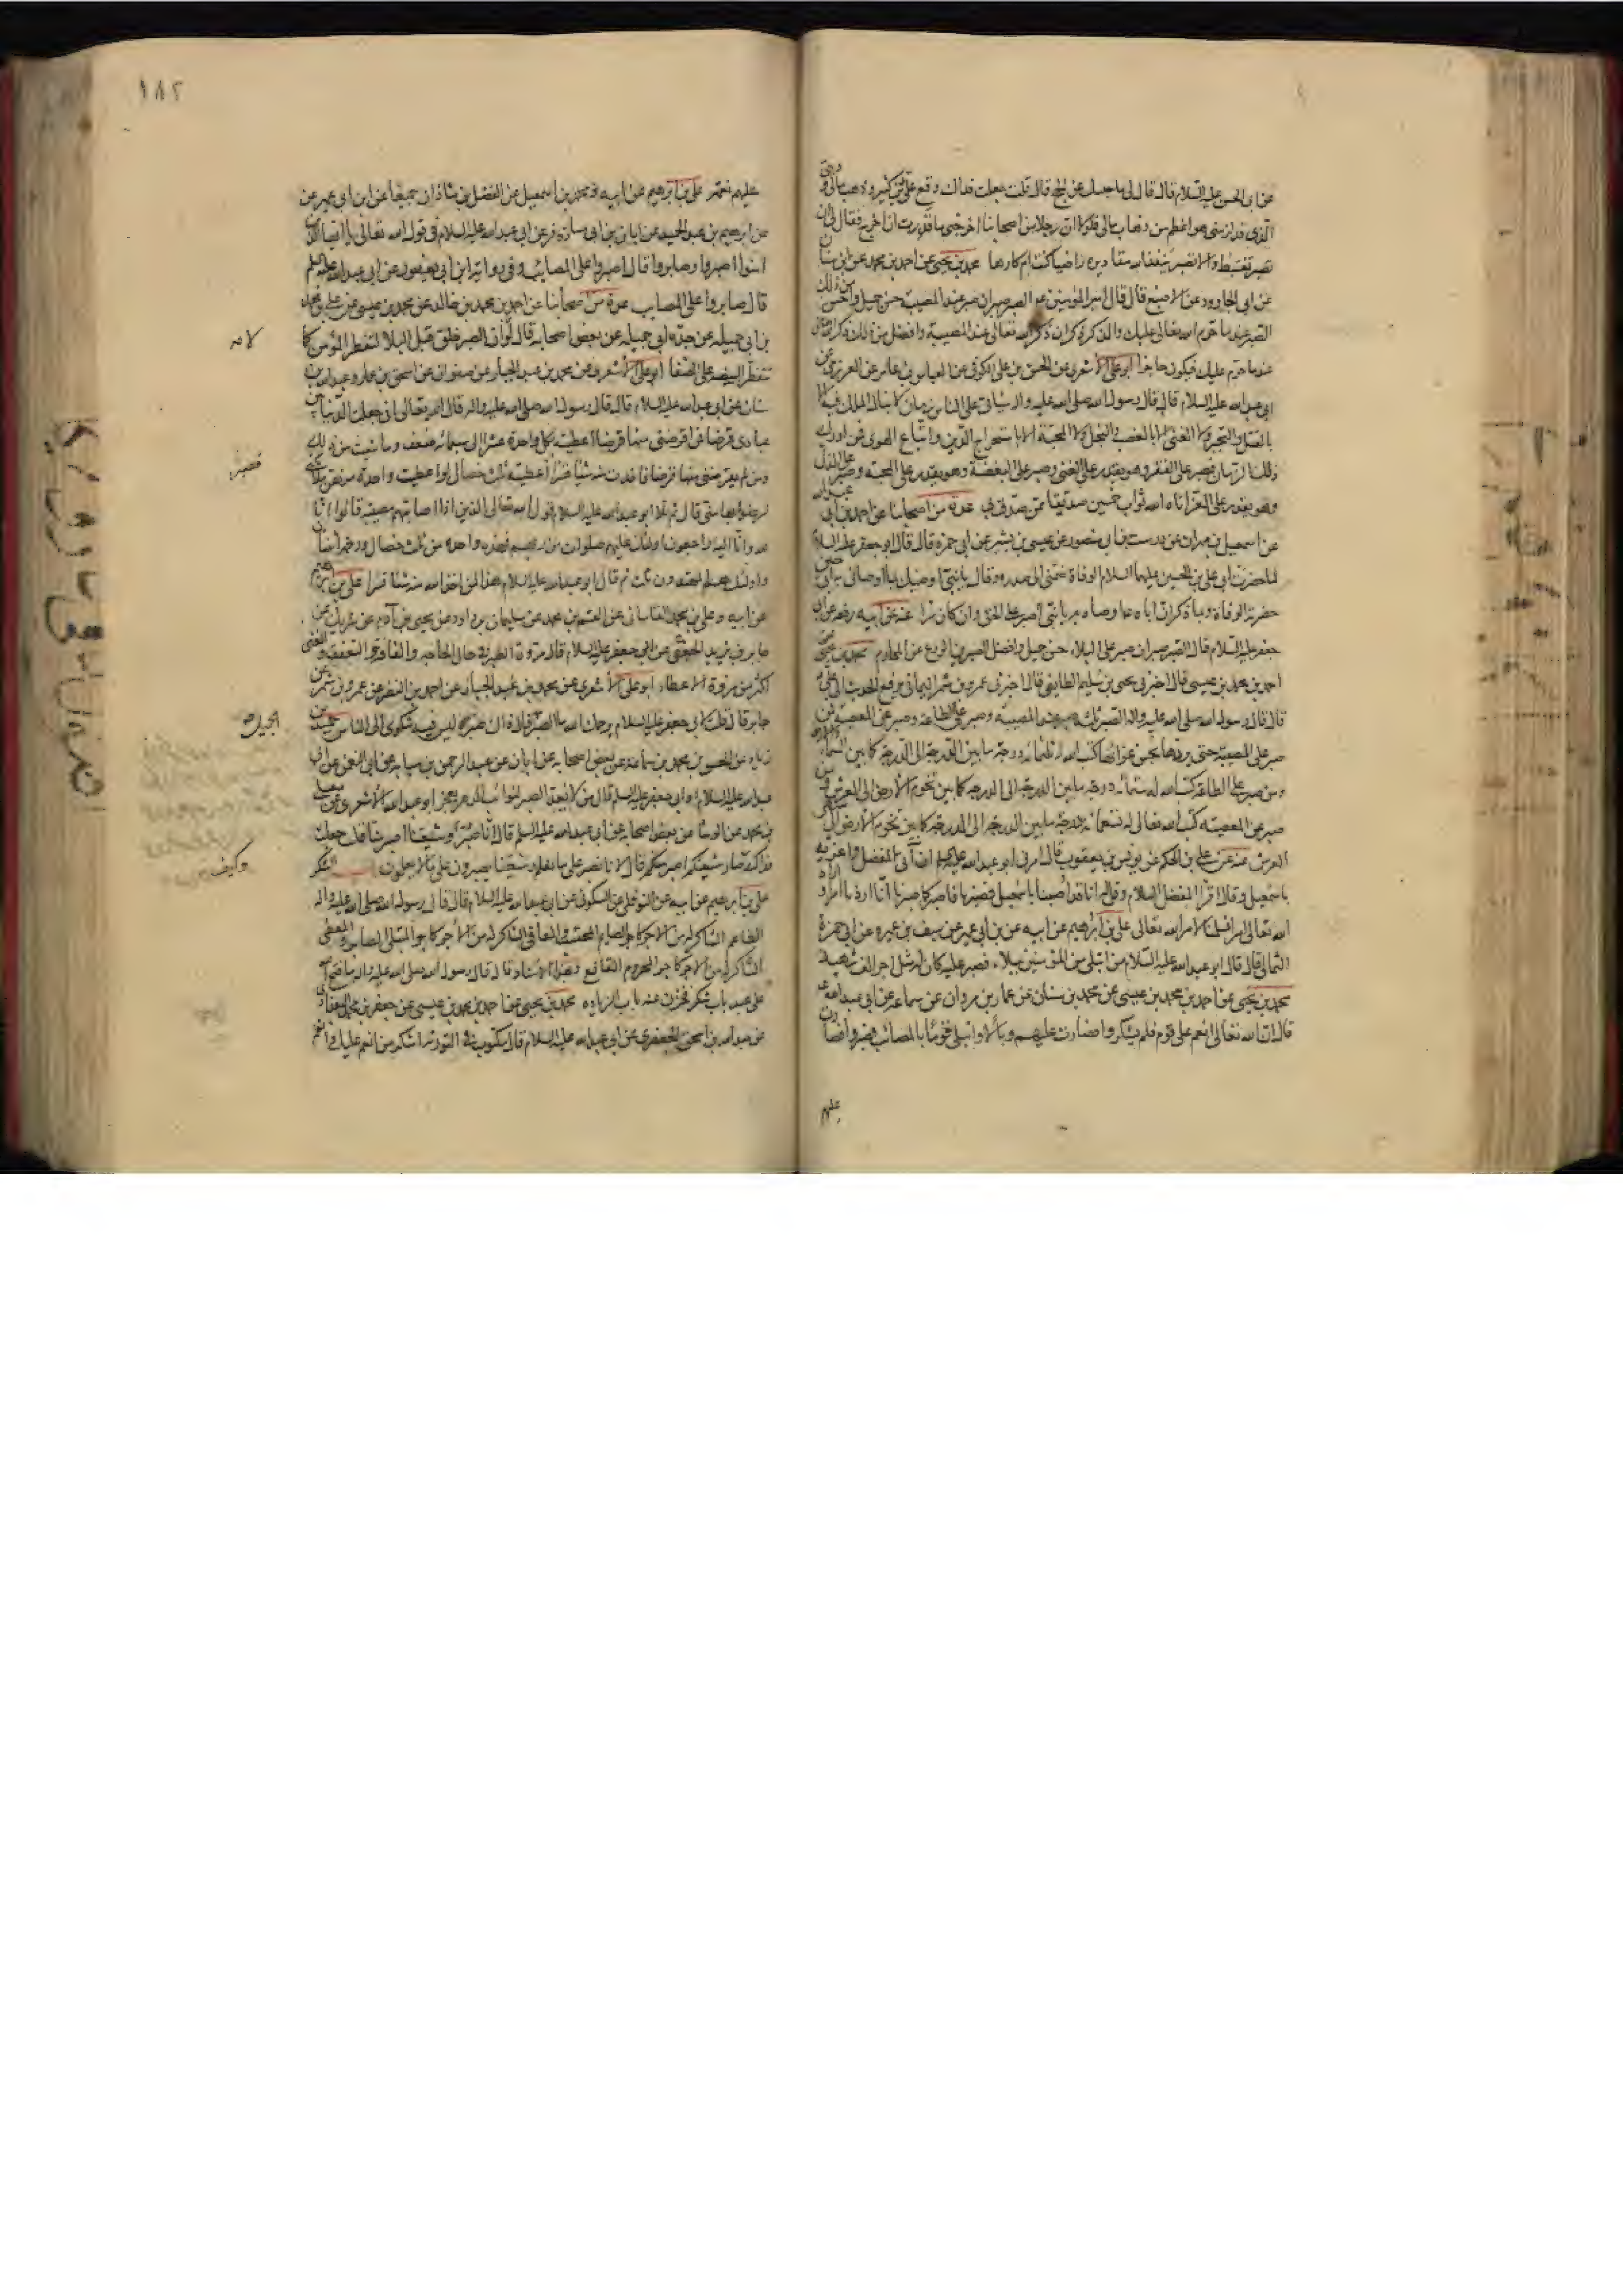 عن ابى الحسن عليه السلام قال قال لى ما حبسك عن الحج قال قلت جعلت فداك وقع على دين كثير وذهب مالى و دينى
الذى قد لزمنى هو اعظم من ذهاب مالى فلولا ان رجلا من اصحابنا اخرجنى ما قدرت ان اخرج فقال لى ان
تصبر تغتبط والا تصبر ينفذ الله مقاديره راضيا كنت ام كارها محمد بن يحيى عن احمد بن محمد عن ابن سنان
عن ابى الجارود عن الاصبغ قال قال امير المؤمنين ع الصبر صبران صبر عند المصيبة حسن جميل واحسن من ذلك
الصبر عند ما حرم الله تعالى عليك والذكر ذكران ذكر الله تعالى عند المصيبة وافضل من ذلك ذكر الله
عند ما حرم عليك فيكون حاجزا ابو على الاشعرى عن الحسن بن على الكوفى عن العباس بن عامر عن العرزمى عن
ابى عبد الله عليه السلام قال قال رسول الله صلى الله عليه واله سياتى على الناس زمان لا ينال الملك فيه الا
بالقتل والتجبر ولا الغنى الا بالغصب والبخل ولا المحبة الا باستخراج الدين واتباع الهوى فمن ادرك
ذلك الزمان فصبر على الفقر وهو يقدر على الغنى وصبر على البغضة وهو يقدر على المحبة وصبر على الذل
وهو يقدر على العز اتاه الله ثواب خمسين صديقا ممن صدق بى عدة من اصحابنا عن احمد بن ابى عبد الله
عن اسمعيل بن مهران عن درست بن ابى منصور عن عيسى بن بشير عن ابى حمزة قال قال ابو جعفر عليه السلام
لما حضرت ابى على بن الحسين عليهما السلام الوفاة ضمنى الى صدره وقال يا بنى اوصيك بما اوصانى به ابى حين
حضرته الوفاة وبما ذكر ان اباه اوصاه به يا بنى اصبر على الحق وان كان مرا عنه عن ابيه رفعه عن ابى
جعفر عليه السلام قال الصبر صبران صبر على البلاء حسن جميل وافضل الصبرين الورع عن المحارم محمد بن يحيى عن
احمد بن محمد بن عيسى قال اخبرنى يحيى بن سليم الطايفى قال اخبرنى عمرو بن شمر اليمانى يرفع الحديث الى على ع
قال قال رسول الله صلى الله عليه واله الصبر ثلثة صبر عند المصيبة وصبر على الطاعة وصبر عن المعصية فمن
صبر على المصيبة حتى يردها بحسن عزائها كتب الله له ثلثمائة درجة ما بين الدرجة الى الدرجة كما بين السماء والارض
ومن صبر على الطاعة كتب الله له ستمائة درجة ما بين الدرجة الى الدرجة كما بين تخوم الارض الى العرش ومن
صبر عن المعصية كتب الله تعالى له تسعمائة درجة ما بين الدرجة الى الدرجة كما بين تخوم الارض الى منتهى
العرش عنه عن على بن الحكم عن يونس بن يعقوب قال امرنى ابو عبد الله عليه السلم ان اتى المفضل واعزيه
باسمعيل وقال اقرأ المفضل السلام وقل له انا قد اصبنا باسمعيل فصبرنا فاصبر كما صبرنا انا اردنا امرا واراد
الله تعالى امرا فسلمنا لامر الله تعالى على بن ابرهيم عن ابيه عن بن ابى عمير عن سيف بن عميرة عن ابى حمزة
الثمالى قال قال ابو عبد الله عليه السلام من ابتلى من المؤمنين ببلاء فصبر عليه كان له مثل اجر الف شهيد
محمد بن يحيى عن احمد بن محمد بن عيسى عن محمد بن سنان عن عمار بن مروان عن سماعة عن ابى عبد الله ع
قال ان الله تعالى انعم على قوم فلم يشكروا فصارت عليهم وبالا وابتلى قوما بالمصائب فصبروا فصارت
عليهم
١٨٢
عليهم نعمة على بن ابرهيم عن ابيه ومحمد بن اسمعيل عن الفضل بن شاذان جميعا عن ابن ابى عمير عن
عن ابرهيم بن عبد الحميد عن ابان بن ابى مسافر عن ابى عبد الله عليه السلام فى قول الله تعالى يا ايها الذين
امنوا اصبروا وصابروا قال اصبروا على المصائب وفى رواية ابن ابى يعفور عن ابى عبد الله عليه السلم
قال صابروا على المصايب عدة من اصحابنا عن احمد بن محمد بن خالد عن محمد بن عيسى عن على بن محمد
بن ابى جميلة عن جده ابى جميلة عن بعض اصحابه قال لولا ان الصبر خلق قبل البلاء لتفطر المؤمن كما
تتفطر البيضة على الصفا ابو على الاشعرى عن محمد بن عبد الجبار عن صفوان عن اسحق بن عمار وعبد الله بن
سنان عن ابى عبد الله عليه السلام قال قال رسول الله صلى الله عليه واله قال الله تعالى انى جعلت الدنيا بين
عبادى قرضا فمن اقرضنى منها قرضا اعطيته بكل واحدة عشرا الى سبعمائة ضعف وما شئت من ذلك
ومن لم يقرضنى منها قرضا فاخذت منه شيئا قسرا اعطيته ثلث خصال لو اعطيت واحدة منهن ملائكتى
لرضوا بها منى قال ثم تلا ابو عبد الله عليه السلام قول الله تعالى الذين اذا اصابتهم مصيبة قالوا انا
لله وانا اليه راجعون اولئك عليهم صلوات من ربهم فهذه واحدة من ثلث خصال ورحمة اثنتان
واولئك هم المهتدون ثلث ثم قال ابو عبد الله عليه السلام هذا لمن اخذ الله منه شيئا قسرا على بن ابرهيم
عن ابيه وعلى بن محمد القاسانى عن القسم بن محمد عن سليمان بن داود عن يحيى بن ادم عن شريك عن
جابر بن يزيد الجعفى عن ابى جعفر عليه السلام قال مروة الصبر فى حال الحاجة والفاقة والتعفف والغنى
اكثر من مروة الاعطاء ابو على الاشعرى عن محمد بن عبد الجبار عن احمد بن النضر عن عمرو بن شمر عن
جابر قال قلت لابى جعفر عليه السلام يرحمك الله ما الصبر قال ذاك صبر ليس فيه شكوى الى الناس حميد بن
زياد عن الحسن بن محمد بن سماعة عن بعض اصحابه عن ابان عن عبد الرحمن بن سيابة عن ابى النعمن عن ابى
عبد الله عليه السلام او ابى جعفر عليه السلم قال من لا يعد الصبر لنوائب الدهر يعجز ابو عبد الله الاشعرى عن معلى
بن محمد عن الوشا عن بعض اصحابه عن ابى عبد الله عليه السلم قال انا صبر وشيعتنا اصبر منا قلت جعلت
فداك كيف صار شيعتكم اصبر منكم قال لانا نصبر على ما نعلم وشيعتنا يصبرون على ما لا يعلمون الشكر
على بن ابرهيم عن ابيه عن النوفلى عن السكونى عن ابى عبد الله عليه السلام قال قال رسول الله صلى الله عليه واله
الطاعم الشاكر له من الاجر كاجر الصايم المحتسب والمعافى الشاكر له من الاجر كاجر المبتلى الصابر والمعطى
الشاكر له من الاجر كاجر المحروم القانع وبهذا الاسناد قال قال رسول الله صلى الله عليه واله ما فتح الله
على عبد باب شكر فخزن عنه باب الزيادة محمد بن يحيى عن احمد بن محمد بن عيسى عن جعفر بن محمد البغدادى
عن عبد الله بن اسحق الجعفرى عن ابى عبد الله عليه السلام قال مكتوب فى التورية اشكر من انعم عليك وانعم